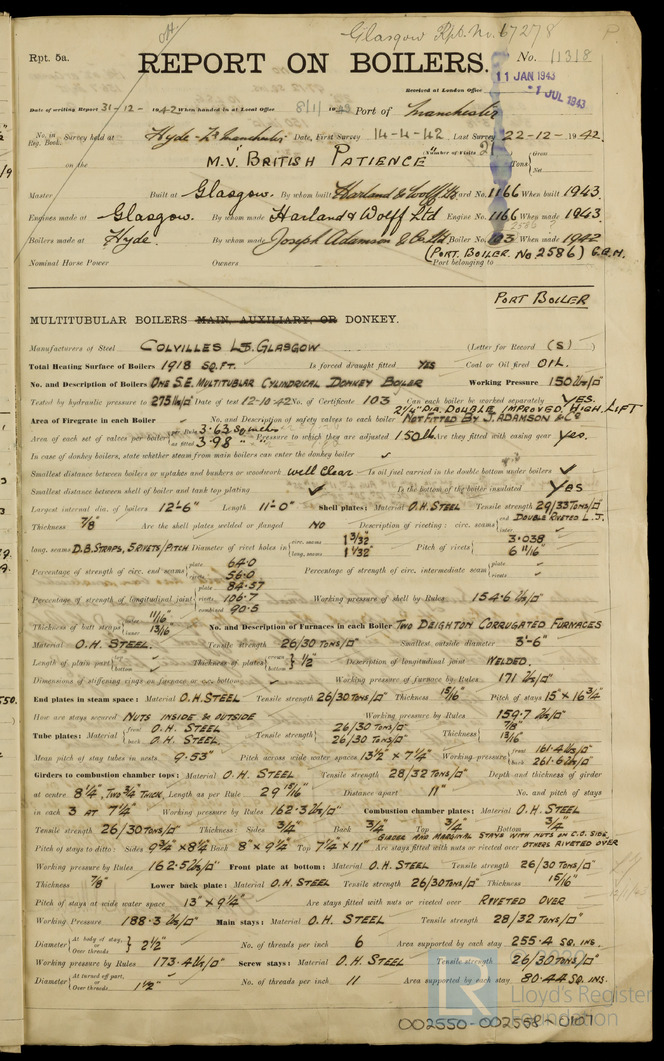 Glasgow Rpt. No. 67278
Rpt. 5a.
REPORT ON BOILERS.
No. 11318
Received at London Office
11 JAN 1943
-1 JUL 1943
Date of writing Report 31-12-1942 When handed in at Local Office 8/1/1943 Port of Manchester
No. in Reg. Book. Survey held at Hyde - Nr Manchester Date, First Survey 14-4-42 Last Survey 22-12-1942
(Number of Visits 21)
on the M.V. "BRITISH PATIENCE" Tons { Gross Net
Master Built at Glasgow. By whom built Harland & Wolff Ltd Yard No. 1166 When built 1943
Engines made at Glasgow. By whom made Harland & Wolff Ltd Engine No. 1166 When made 1943
Boilers made at Hyde. By whom made Joseph Adamson & Co. Ltd Boiler No. 103 When made 1942
(PORT. BOILER. No. 2586) G.B.M.
Nominal Horse Power Owners Port belonging to
PORT BOILER
MULTITUBULAR BOILERS MAIN, AUXILIARY, OR DONKEY.
Manufacturers of Steel COLVILLES LD. GLASGOW (Letter for Record (S))
Total Heating Surface of Boilers 1918 SQ.FT. Is forced draught fitted YES Coal or Oil fired OIL.
No. and Description of Boilers ONE S.E. MULTITUBULAR CYLINDRICAL DONKEY BOILER Working Pressure 150 LBS/□"
Tested by hydraulic pressure to 275 LBS/□" Date of test 12-10-42 No. of Certificate 103 Can each boiler be worked separately YES.
2¼" DIA. DOUBLE IMPROVED HIGH LIFT
Area of Firegrate in each Boiler No. and Description of safety valves to each boiler NOT FITTED BY J. ADAMSON & Co
Area of each set of valves per boiler { per Rule 3.63 sq inches as fitted 3.98 " " Pressure to which they are adjusted 150 lb. Are they fitted with easing gear Yes.
In case of donkey boilers, state whether steam from main boilers can enter the donkey boiler ✓
Smallest distance between boilers or uptakes and bunkers or woodwork well clear Is oil fuel carried in the double bottom under boilers ✓
Smallest distance between shell of boiler and tank top plating ✓ Is the bottom of the boiler insulated yes
Largest internal dia. of boilers 12'-6" Length 11'-0" Shell plates: Material O.H. STEEL Tensile strength 29/33 TONS/□"
Thickness 7/8" Are the shell plates welded or flanged NO Description of riveting: circ. seams { end DOUBLE RIVETED L.J. inter.
long. seams D.B. STRAPS, 5 RIVETS/PITCH Diameter of rivet holes in { circ. seams 1 3/32" long. seams 1 1/32" Pitch of rivets { 3.038 6 11/16"
Percentage of strength of circ. end seams { plate 64.0 rivets 56.0 Percentage of strength of circ. intermediate seam { plate ✓ rivets ✓
Percentage of strength of longitudinal joint { plate 84.57 rivets 106.7 combined 90.5 Working pressure of shell by Rules 154.6 LBS/□"
Thickness of butt straps { outer 11/16" inner 13/16" No. and Description of Furnaces in each Boiler TWO DEIGHTON CORRUGATED FURNACES
Material O.H. STEEL. Tensile strength 26/30 TONS/□" Smallest outside diameter 3'-6"
Length of plain part { top bottom ✓ Thickness of plates { crown bottom } ½" Description of longitudinal joint WELDED.
Dimensions of stiffening rings on furnace or c.c. bottom ✓ Working pressure of furnace by Rules 171 LBS/□"
End plates in steam space: Material O.H. STEEL Tensile strength 26/30 TONS/□" Thickness 15/16" Pitch of stays 15" x 16¾"
How are stays secured NUTS INSIDE & OUTSIDE Working pressure by Rules 159.7 LBS/□"
Tube plates: Material { front O.H. STEEL back O.H. STEEL, Tensile strength { 26/30 TONS/□" 26/30 TONS/□" Thickness { 7/8" 13/16"
Mean pitch of stay tubes in nests 9.53" Pitch across wide water spaces 13½" x 7¼" Working pressure { front 161.4 LBS/□" back 261.6 LBS/□"
Girders to combustion chamber tops: Material O.H. STEEL Tensile strength 28/32 TONS/□" Depth and thickness of girder
at centre 8¼", TWO ¾" THICK. Length as per Rule 29 15/16" Distance apart 11" No. and pitch of stays
in each 3 AT 7¼" Working pressure by Rules 162.3 LBS/□" Combustion chamber plates: Material O.H. STEEL
Tensile strength 26/30 TONS/□" Thickness: Sides ¾" Back ¾" Top ¾" Bottom ¾"
GIRDER AND MARGINAL STAYS WITH NUTS IN C.C. SIDE,
Pitch of stays to ditto: Sides 9¾" x 8¼" Back 8" x 9¼" Top 7¼" x 11" Are stays fitted with nuts or riveted over OTHERS RIVETED OVER
Working pressure by Rules 162.5 LBS/□" Front plate at bottom: Material O.H. STEEL Tensile strength 26/30 TONS/□"
Thickness 7/8" Lower back plate: Material O.H. STEEL Tensile strength 26/30 TONS/□" Thickness 15/16"
Pitch of stays at wide water space 13" x 9¼" Are stays fitted with nuts or riveted over RIVETED OVER
Working Pressure 188.3 LBS/□" Main stays: Material O.H. STEEL Tensile strength 28/32 TONS/□"
Diameter { At body of stay, or Over threads } 2½" No. of threads per inch 6 Area supported by each stay 255.4 SQ. INS.
Working pressure by Rules 173.4 LBS/□" Screw stays: Material O.H. STEEL Tensile strength 26/30 TONS/□"
Diameter { At turned off part, or Over threads 1½" No. of threads per inch 11 Area supported by each stay 80.44 SQ. INS.
LR Lloyd's Register Foundation
002550-002558-0107